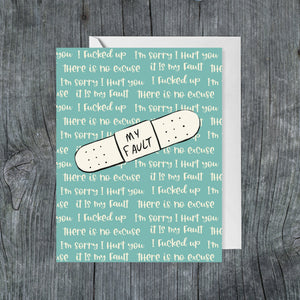 you I Fucked up I'm sorry I Hurt you
There is no excuse it Is my Fault
I'm sorry I Hurt you I Fucked up
use it Is my Fault There is no excuse
you I Fucked up I'm sorry I Hurt you
There is no excuse
I'm sorry I Hurt
MY
FAULT
use it Is my Fault
you I Fucked up
There is no excuse it Is my Fault
I'm sorry I Hurt you I Fucked up
use it Is my Fault There is no excuse
you I Fucked up I'm sorry I Hurt you
There is no excuse it Is my Fault
I'm sorry I Hurt you I Fucked up
use it Is my Fault There is no excuse